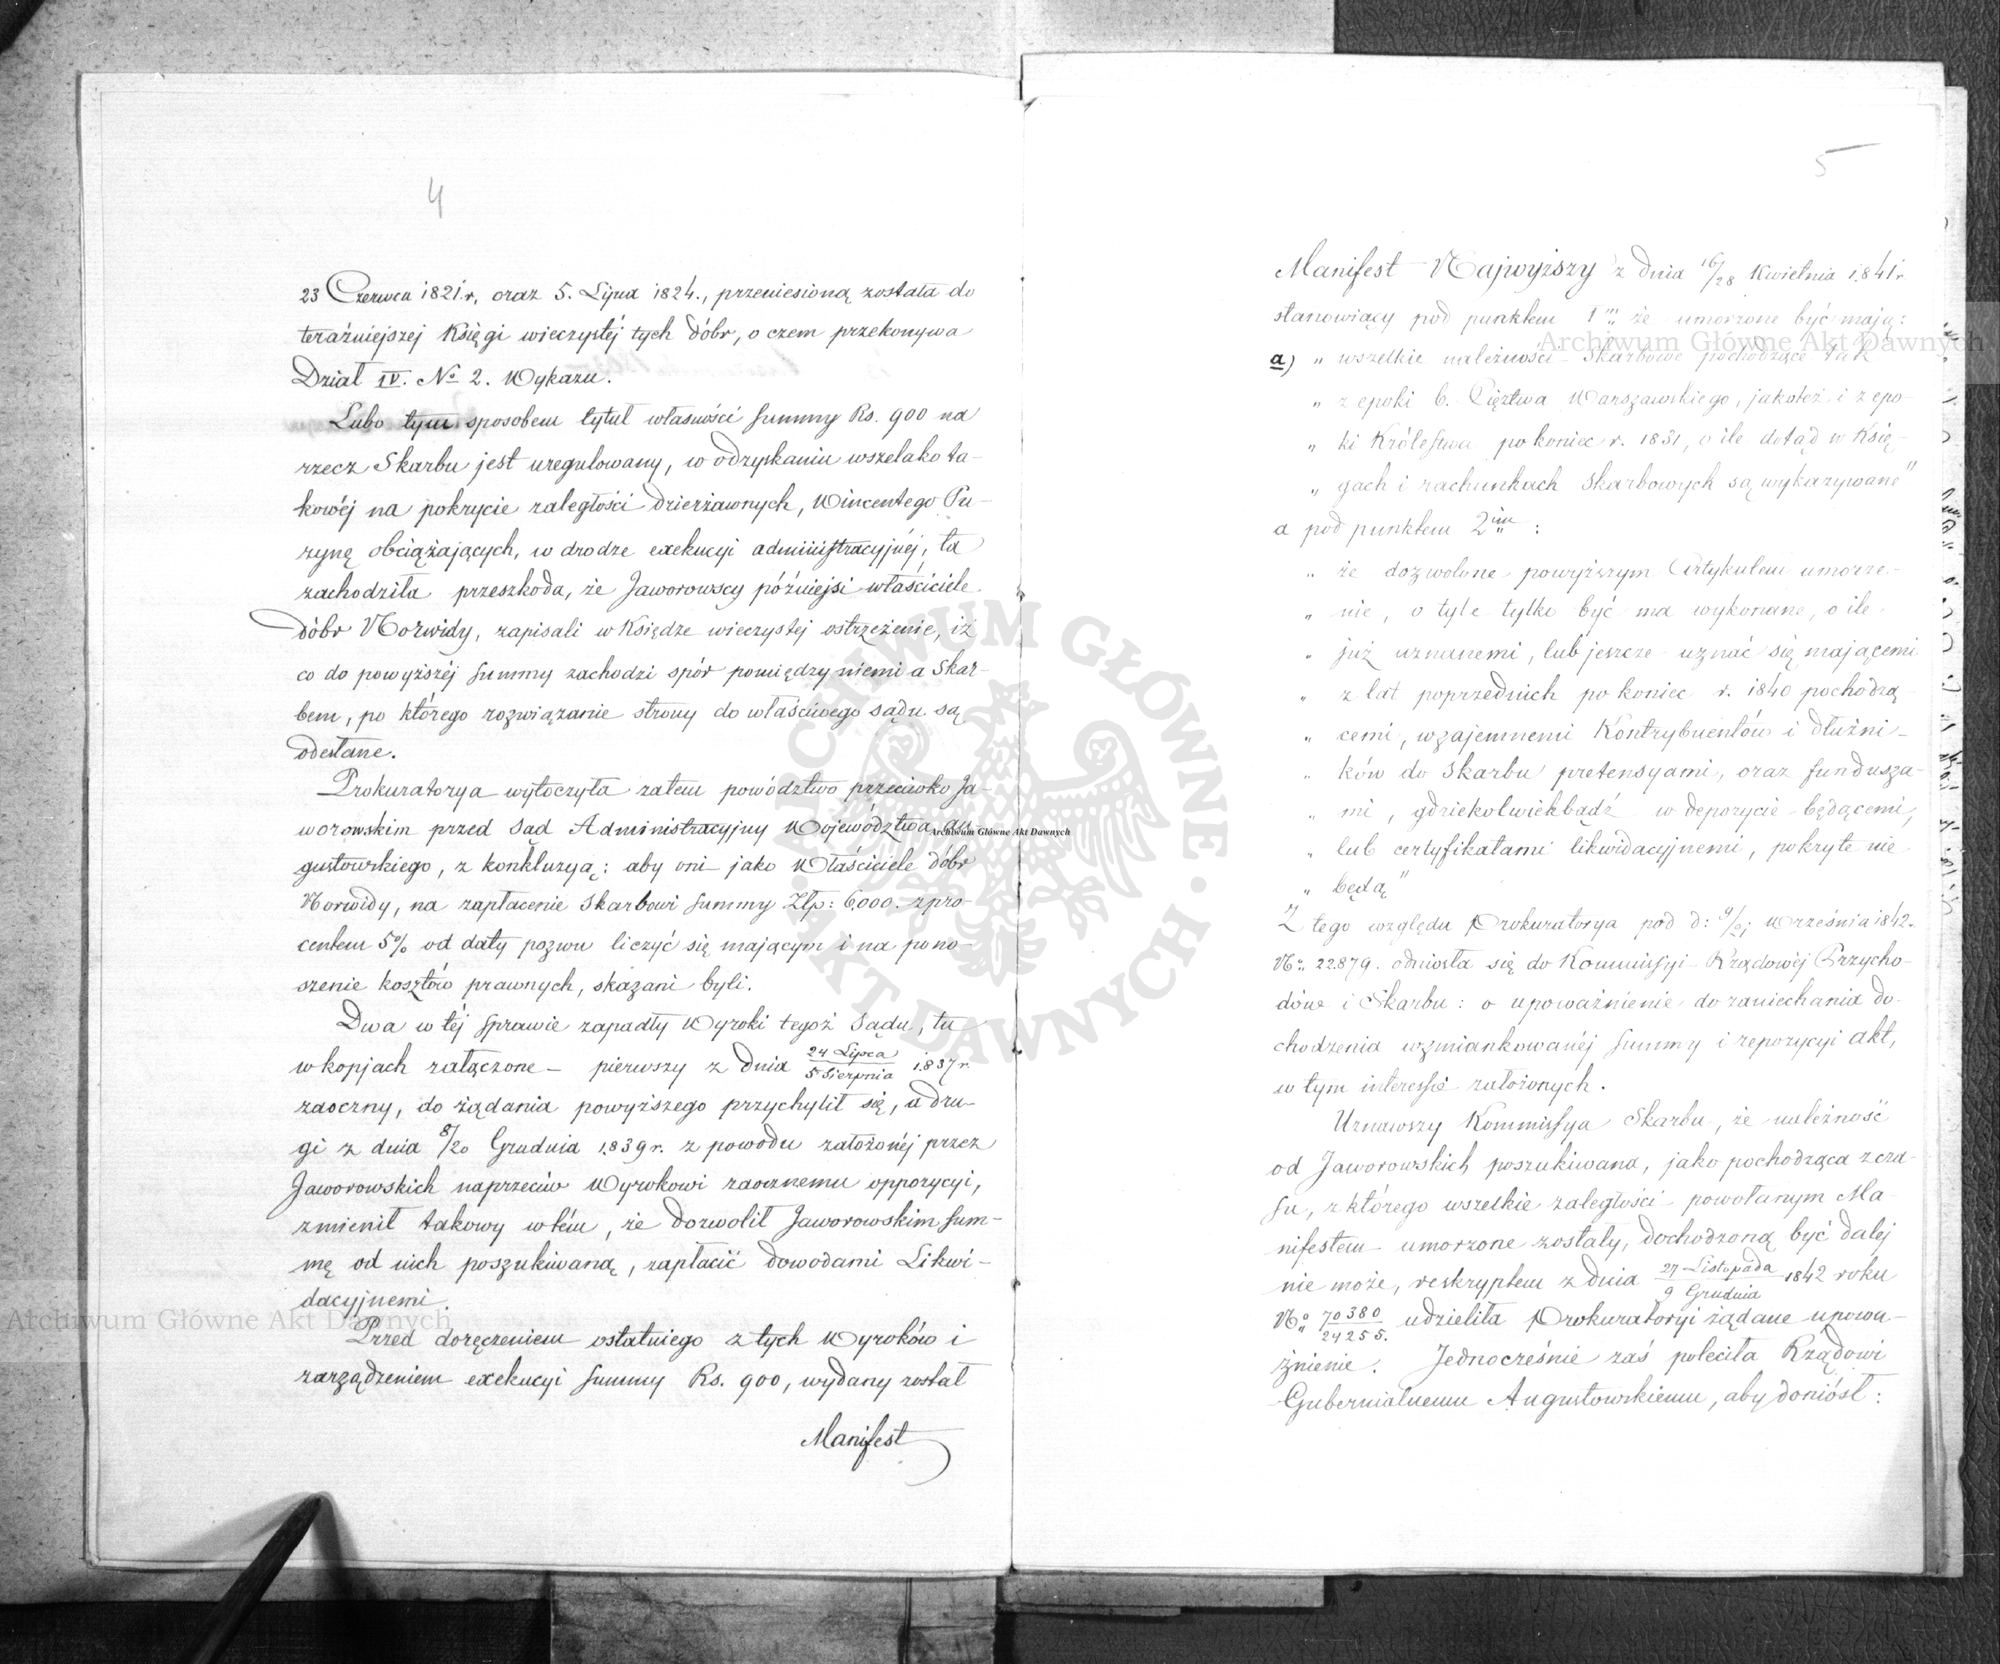 4
23 Czerwca 1821.r, oraz 5. Lipca 1824., przeniesioną została do
teraźniejszej Księgi wieczystéj tych dóbr, o czem przekonywa
Dział IV. No 2. Wykazu.
Lubo tym sposobem tytuł własności summy Rs. 900 na
rzecz Skarbu jest uregulowany, w odzyskaniu wszelako ta-
kowéj na pokrycie zaległości dzierżawnych, Wincentego Pu-
zynę obciążających, w drodze exekucyi administracyjnéj, ta
zachodziła przeszkoda, że Jaworowscy późniejsi właściciele
dóbr Norwidy, zapisali w Księdze wieczystej ostrzeżenie, iż
co do powyższéj summy zachodzi spór pomiędzy niemi a Skar-
bem, po którego rozwiązanie strony do właściwego sądu są
odesłane.
Prokuratorya wytoczyła zatem powództwo przeciwko Ja-
worowskim przed Sąd Administracyjny Województwa Au-
gustowskiego, z konkluzyą: aby oni jako Właściciele dóbr
Norwidy, na zapłacenie Skarbowi summy Złp: 6,000. z pro-
centem 5% od daty pozwu liczyć się mającym i na pono-
szenie kosztów prawnych, skazani byli.
Dwa w téj sprawie zapadły Wyroki tegoż Sądu, tu
w kopjach załączone – pierwszy z dnia 24 Lipca/5 Sierpnia 1837 r.
zaoczny, do żądania powyższego przychylił się, a dru-
gi z dnia 8/20 Grudnia 1839 r. z powodu założonéj przez
Jaworowskich naprzeciw Wyrokowi zaocznemu oppozycyi,
zmienił takowy w tém, że dozwolił Jaworowskim sum-
mę od nich poszukiwaną, zapłacić dowodami Likwi-
dacyjnemi.
Przed doręczeniem ostatniego z tych Wyroków i
zarządzeniem exekucyi summy Rs. 900, wydany został
Manifest
5
Manifest Najwyższy z dnia 16/28 Kwietnia 1841 r.
stanowiący pod punktem 1m że umorzone być mają:
a) „ wszelkie należności Skarbowe pochodzące tak
„ z epoki b. Xięztwa Warszawskiego, jakoteż i z epo-
„ ki Królestwa po koniec r. 1831, o ile dotąd w Księ-
„ gach i rachunkach Skarbowych są wykazywane"
a pod punktem 2im :
„ że dozwolone powyższym Artykułem umorze-
„ nie, o tyle tylko być ma wykonane, o ile
„ już uznanemi, lub jeszcze uznać się mającemi
„ z lat poprzednich po koniec r. 1840 pochodzą-
„ cemi, wzajemnemi Kontrybuentów i dłużni-
„ ków do Skarbu pretensyami, oraz fundusza-
„ mi, gdziekolwiekbądź w depozycie będącemi,
„ lub certyfikatami likwidacyjnemi, pokryte nie
„ będą"
Z tego względu Prokuratorya pod d: Września 1842.
No. 22.879. odniosła się do Kommissyi Rządowéj Przycho-
dów i Skarbu: o upoważnienie do zaniechania do-
chodzenia wzmiankowanéj summy i repozycyi akt,
w tym interessie założonych.
Uznawszy Kommissya Skarbu, że należność
od Jaworowskich poszukiwana, jako pochodząca z cza-
su, z którego wszelkie zaległości powołanym Ma-
nifestem umorzone zostały, dochodzoną być dalej
nie może, reskryptem z dnia 27 Listopada/9 Grudnia 1842 roku
No. 70380/24255. udzieliła Prokuratoryi żądane upowa-
żnienie. Jednocześnie zaś poleciła Rządowi
Gubernialnemu Augustowskiemu, aby doniósł:
Archiwum Główne Akt Dawnych
Archiwum Główne Akt Dawnych
Archiwum Główne Akt Dawnych
ARCHIWUM GŁÓWNE AKT DAWNYCH